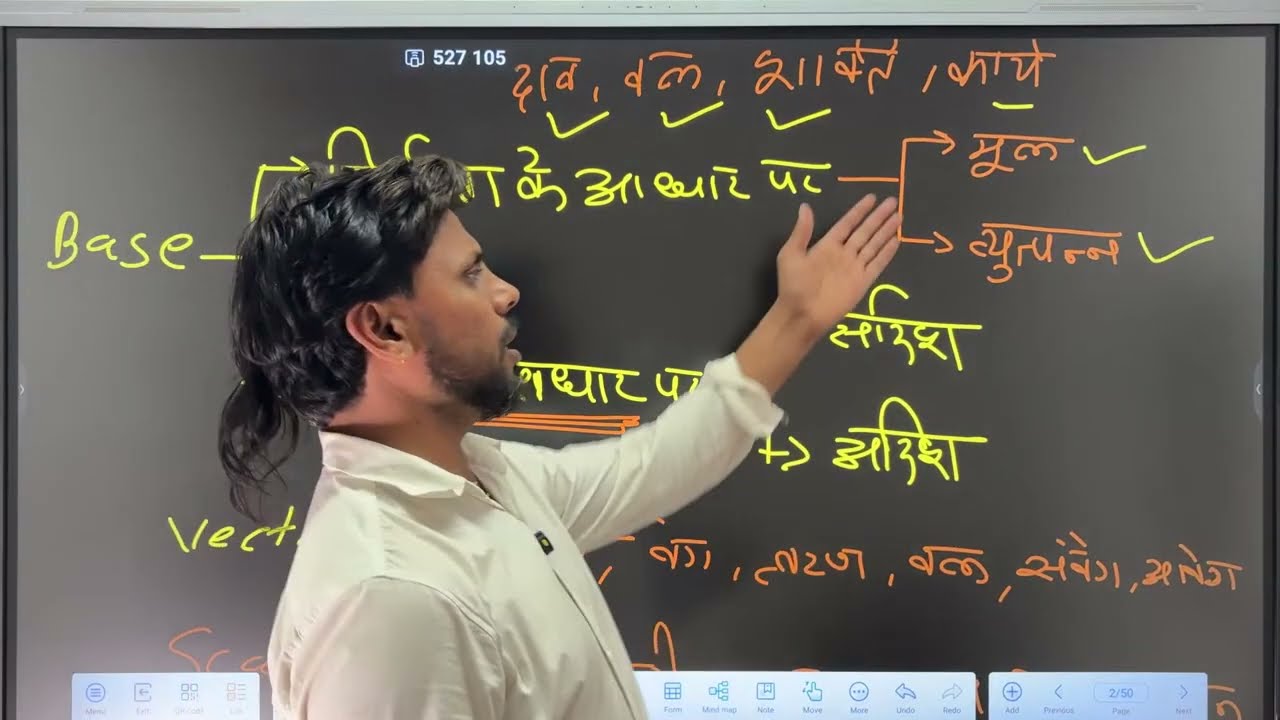 527 105
दाब, बल, शक्ति, कार्य
के आधार पर
मूल
Base
व्युत्पन्न
सदिश
आधार पर
अदिश
Vect
वेग, त्वरण, बल, संवेग, आवेग
Sca
Menu Exit QR code Edit Form Mind map Note Move More Undo Redo Add Previous 2/50 Page Next